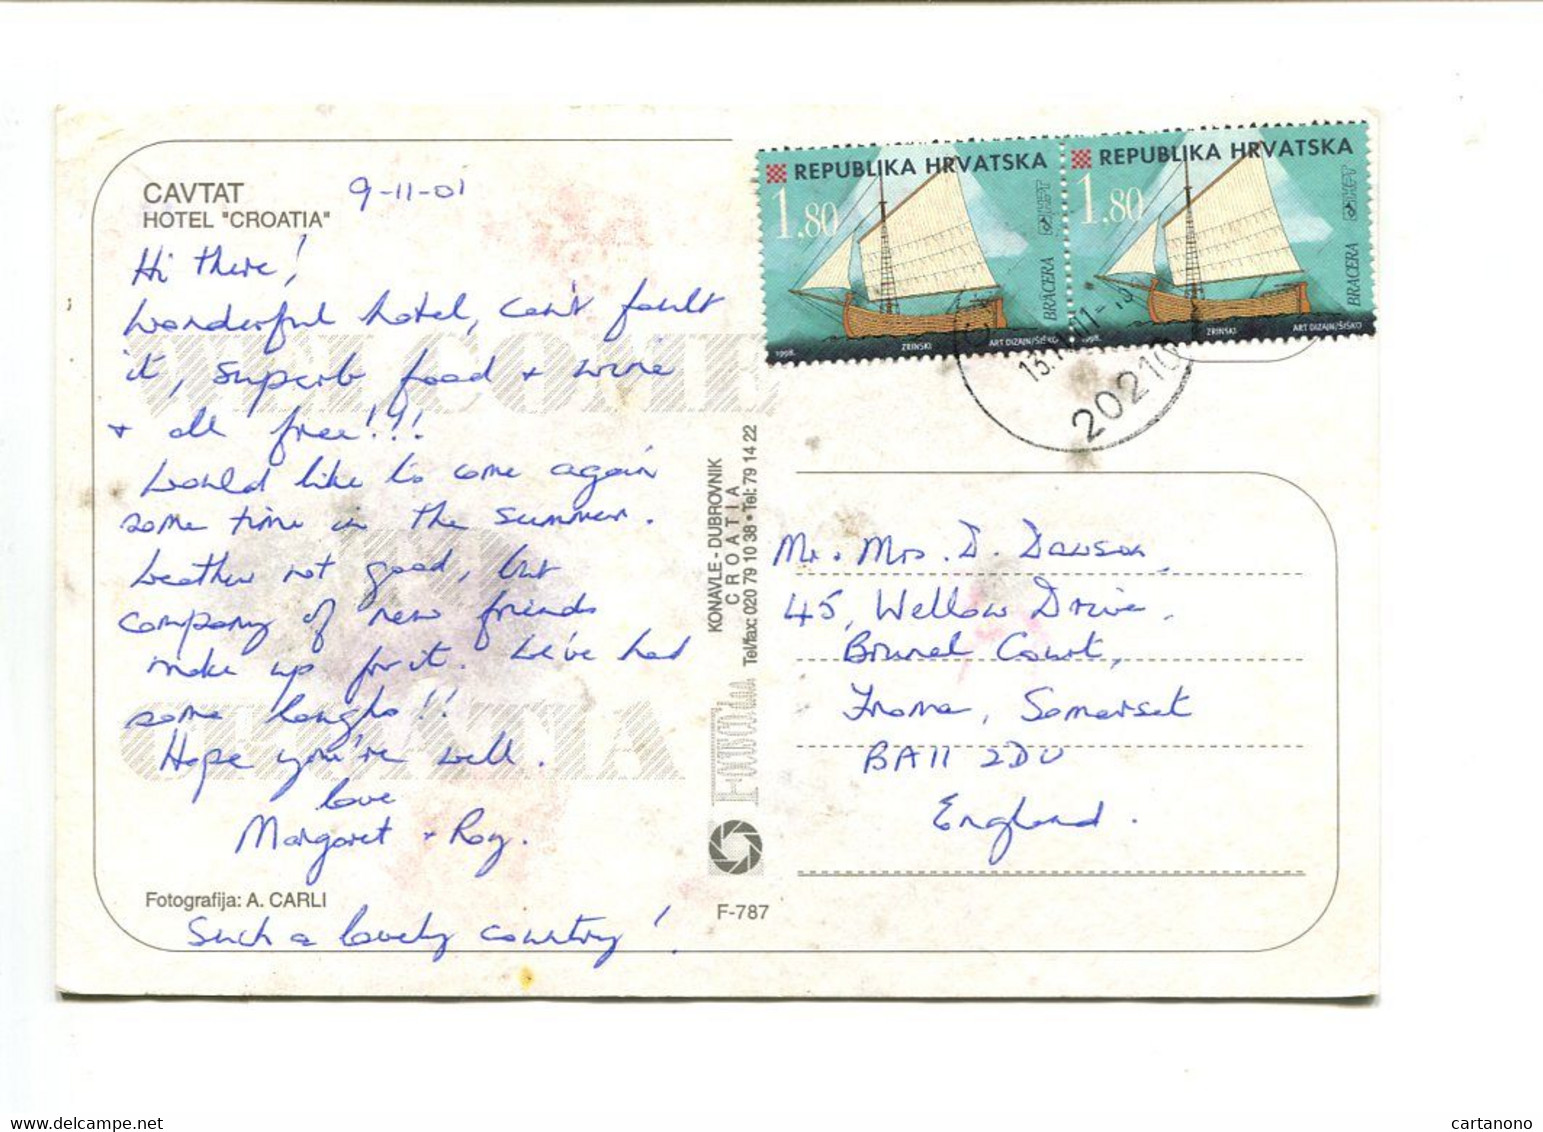 CAVTAT
HOTEL "CROATIA"
9-11-01
Hi there!
Wonderful hotel, can't fault
it, superb food + wine
+ all free!!!
Would like to come again
some time in the summer.
Weather not good, but
company of new friends
make up for it. We've had
some laughs!!
Hope you're well.
love
Margaret + Roy.
Fotografija: A. CARLI
Such a lovely country!
WELCOME
TO
CROATIA
KONAVLE - DUBROVNIK
CROATIA
Tel/fax: 020 79 10 38 • Tel: 79 14 22
F-787
REPUBLIKA HRVATSKA
1.80
HPT
BRACERA
1998.
ZRINSKI
ART DIZAJN/ŠIŠKO
REPUBLIKA HRVATSKA
1.80
HPT
BRACERA
1998.
ZRINSKI
ART DIZAJN/ŠIŠKO
20210
Mr. Mrs. D. Dawson,
45, Wellow Drive,
Brunel Court,
Frome, Somerset
BA11 2DU
England.
delcampe.net
cartanono